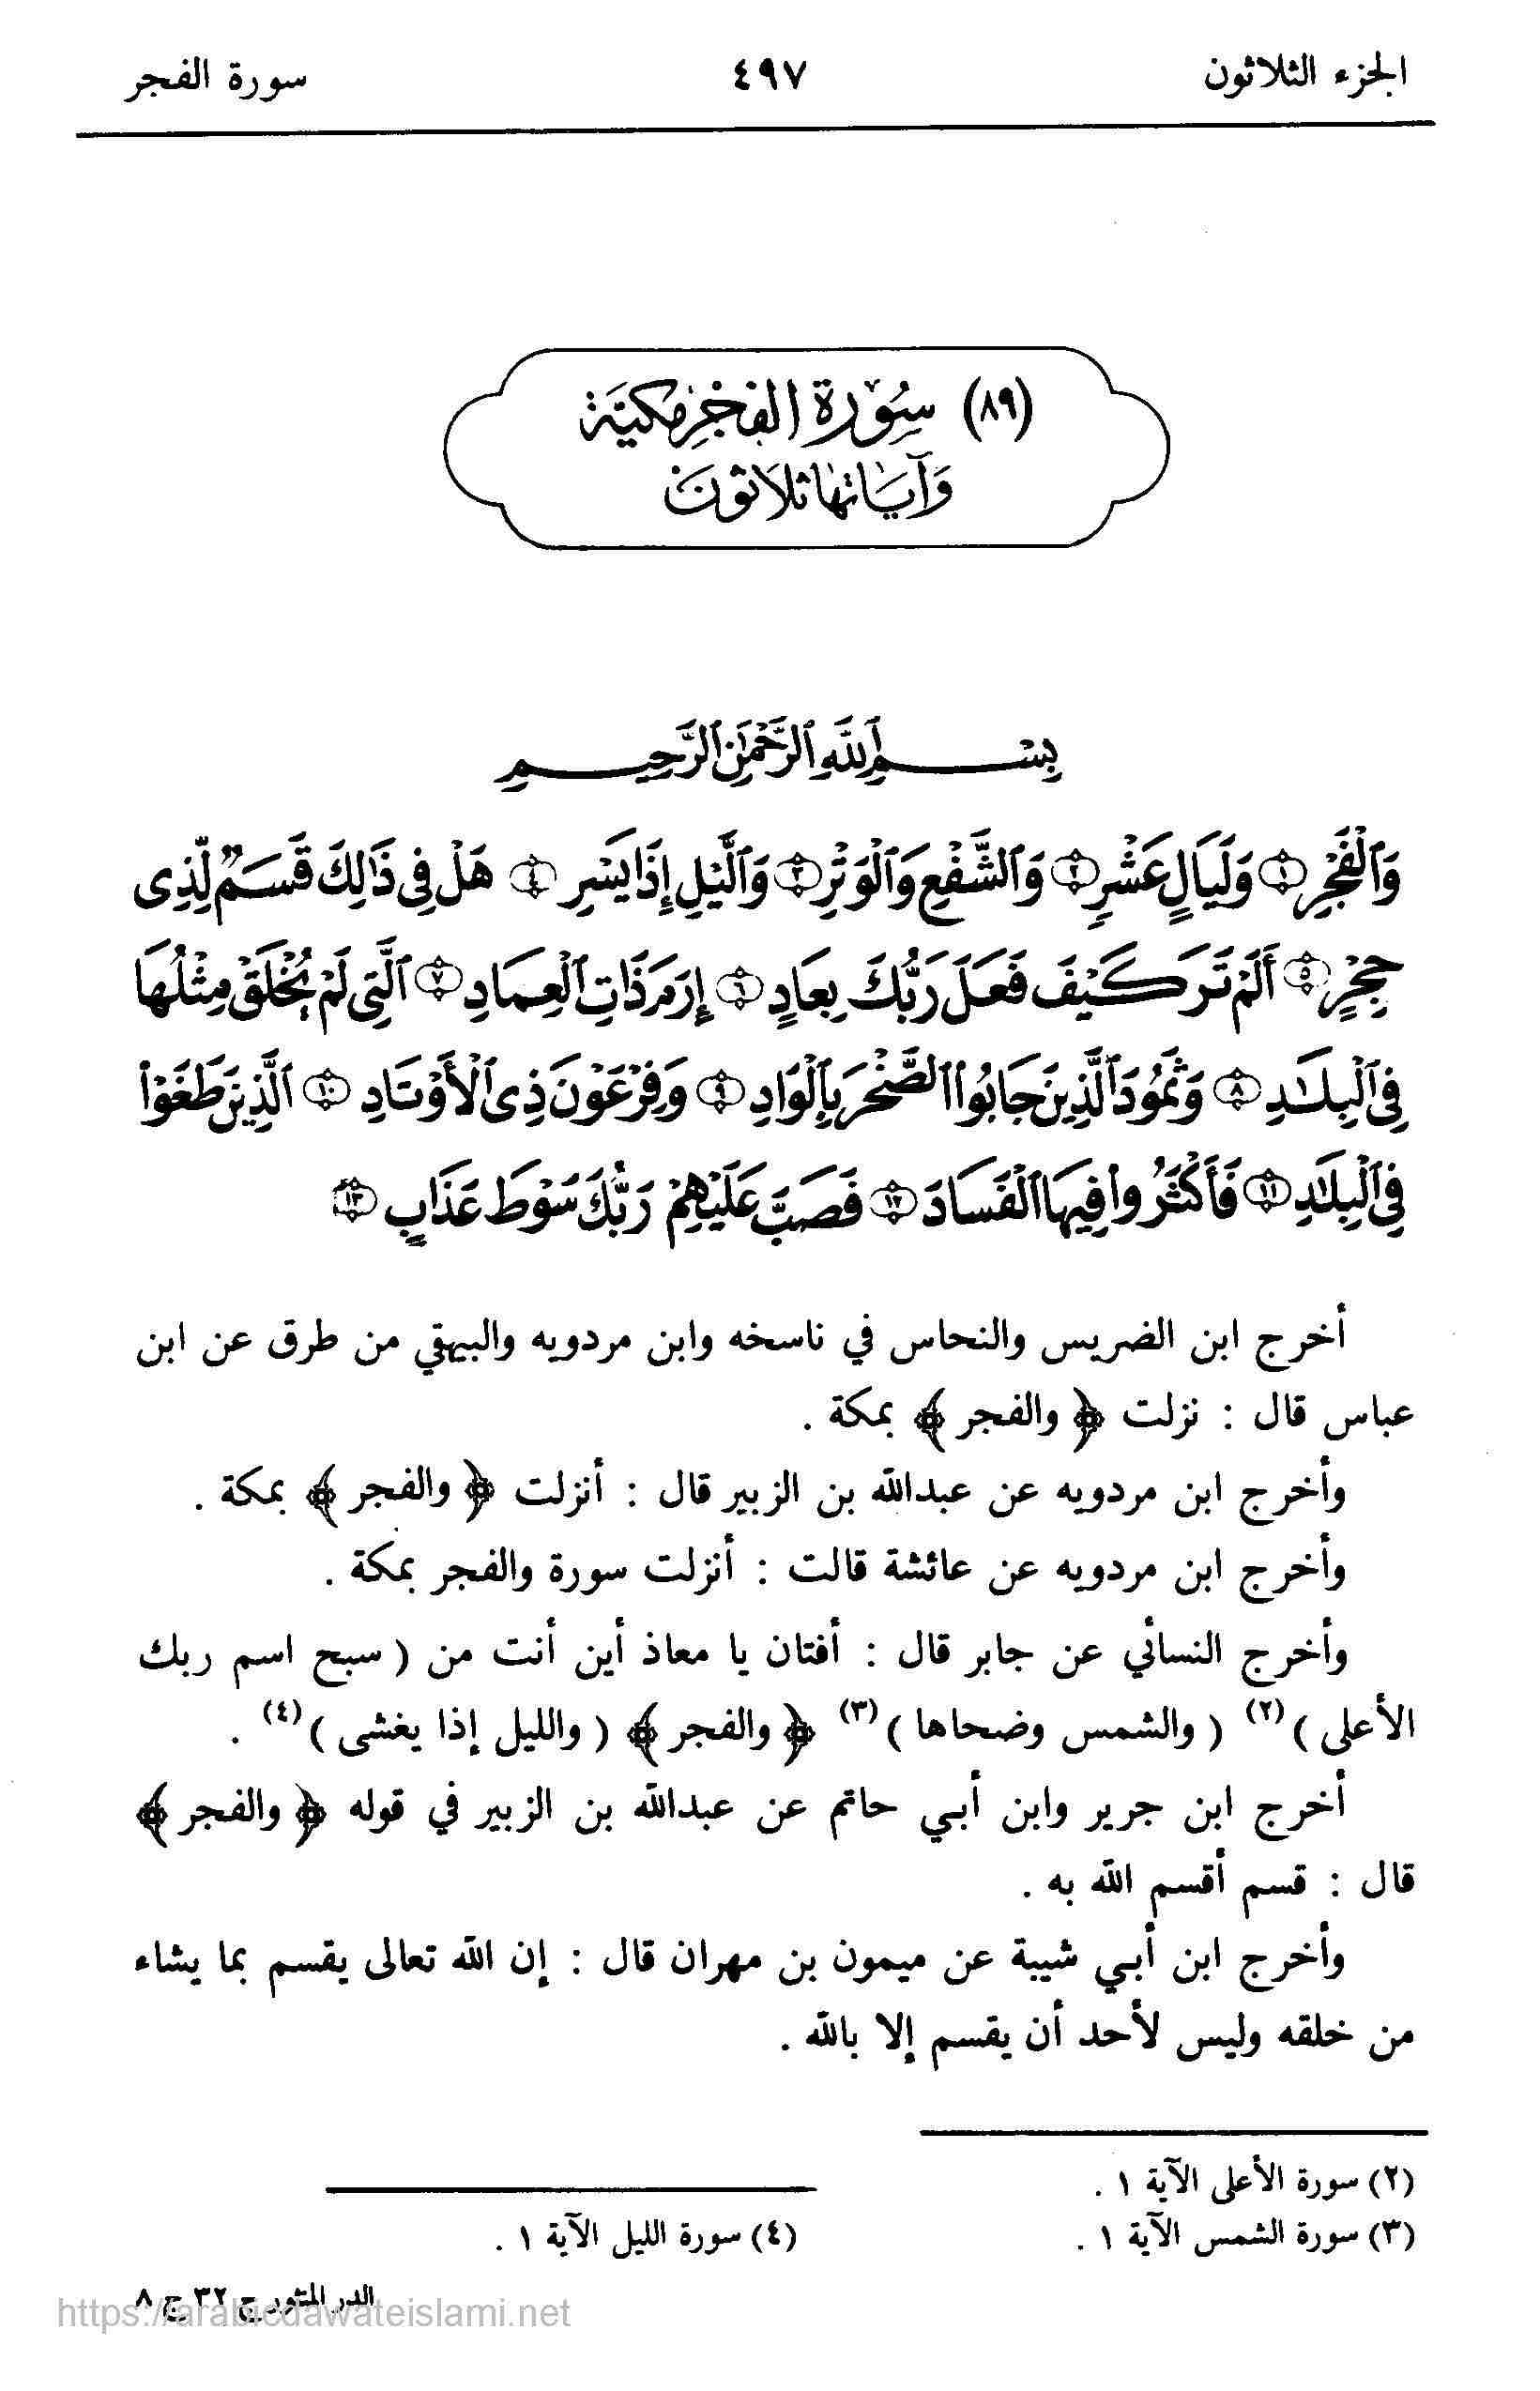 الجزء الثلاثون ٤٩٧ سورة الفجر
(٨٩) سُوْرَة الفَجْرِ مَكيَّة
وَآيَاتهَا ثلَاثونَ
بِسْمِ ٱللَّهِ ٱلرَّحْمَٰنِ ٱلرَّحِيمِ
وَٱلْفَجْرِ ١ وَلَيَالٍ عَشْرٍ ٢ وَٱلشَّفْعِ وَٱلْوَتْرِ ٣ وَٱلَّيْلِ إِذَا يَسْرِ ٤ هَلْ فِى ذَٰلِكَ قَسَمٌ لِّذِى
حِجْرٍ ٥ أَلَمْ تَرَ كَيْفَ فَعَلَ رَبُّكَ بِعَادٍ ٦ إِرَمَ ذَاتِ ٱلْعِمَادِ ٧ ٱلَّتِى لَمْ يُخْلَقْ مِثْلُهَا
فِى ٱلْبِلَٰدِ ٨ وَثَمُودَ ٱلَّذِينَ جَابُوا۟ ٱلصَّخْرَ بِٱلْوَادِ ٩ وَفِرْعَوْنَ ذِى ٱلْأَوْتَادِ ١٠ ٱلَّذِينَ طَغَوْا۟
فِى ٱلْبِلَٰدِ ١١ فَأَكْثَرُوا۟ فِيهَا ٱلْفَسَادَ ١٢ فَصَبَّ عَلَيْهِمْ رَبُّكَ سَوْطَ عَذَابٍ ١٣
أخرج ابن الضريس والنحاس في ناسخه وابن مردويه والبيهقي من طرق عن ابن
عباس قال : نزلت ﴿ والفجر ﴾ بمكة .
وأخرج ابن مردويه عن عبدالله بن الزبير قال : أنزلت ﴿ والفجر ﴾ بمكة .
وأخرج ابن مردويه عن عائشة قالت : أنزلت سورة والفجر بمكة .
وأخرج النسائي عن جابر قال : أفتان يا معاذ أين أنت من ( سبح اسم ربك
الأعلى )(٢) ( والشمس وضحاها )(٣) ﴿ والفجر ﴾ ( والليل إذا يغشى )(٤) .
أخرج ابن جرير وابن أبي حاتم عن عبدالله بن الزبير في قوله ﴿ والفجر ﴾
قال : قسم أقسم الله به .
وأخرج ابن أبي شيبة عن ميمون بن مهران قال : إن الله تعالى يقسم بما يشاء
من خلقه وليس لأحد أن يقسم إلا بالله .
(٢) سورة الأعلى الآية ١ .
(٣) سورة الشمس الآية ١ .
(٤) سورة الليل الآية ١ .
الدر المنثور ج ٣٢ ج ٨
https://arabicdawateislami.net